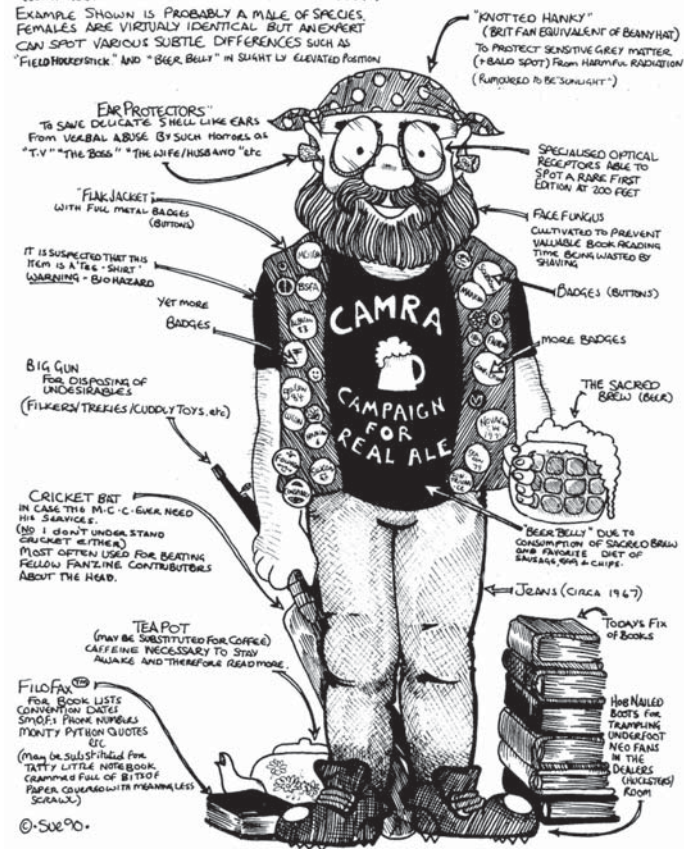 EXAMPLE SHOWN IS PROBABLY A MALE OF SPECIES.
FEMALES ARE VIRTUALY IDENTICAL BUT AN EXPERT
CAN SPOT VARIOUS SUBTLE DIFFERENCES SUCH AS
"FIELD HOCKEY STICK" AND "BEER BELLY" IN SLIGHTLY ELEVATED POSITION
"KNOTTED HANKY"
(BRIT FAN EQUIVALENT OF BEANY HAT)
TO PROTECT SENSITIVE GREY MATTER
(+ BALD SPOT) FROM HARMFUL RADIATION
(RUMOURED TO BE "SUNLIGHT")
EAR PROTECTORS"
TO SAVE DELICATE SHELL LIKE EARS
FROM VERBAL ABUSE BY SUCH HORRORS AS
"T.V" "THE BOSS" "THE WIFE/HUSBAND" etc
SPECIALISED OPTICAL
RECEPTORS ABLE TO
SPOT A RARE FIRST
EDITION AT 200 FEET
"FLAK JACKET"
WITH FULL METAL BADGES
(BUTTONS)
FACE FUNGUS
CULTIVATED TO PREVENT
VALUABLE BOOK READING
TIME BEING WASTED BY
SHAVING
IT IS SUSPECTED THAT THIS
ITEM IS A "TEE-SHIRT"
WARNING - BIO HAZARD
BADGES (BUTTONS)
YET MORE
BADGES
MORE BADGES
BSFA
CAMRA
CAMPAIGN
FOR
REAL ALE
BIG GUN
FOR DISPOSING OF
UNDESIRABLES
(FILKERS/TREKIES/CUDDLY TOYS, etc)
THE SACRED
BREW (BEER)
CRICKET BAT
IN CASE THE M.C.C. EVER NEED
HIS SERVICES.
(NO I DON'T UNDERSTAND
CRICKET EITHER)
MOST OFTEN USED FOR BEATING
FELLOW FANZINE CONTRIBUTORS
ABOUT THE HEAD.
"BEER BELLY" DUE TO
CONSUMPTION OF SACRED BREW
AND FAVORITE DIET OF
SAUSAGE, EGG & CHIPS.
JEANS (CIRCA 1967)
TODAY'S FIX
OF BOOKS
TEA POT
(MAY BE SUBSTITUTED FOR COFFEE)
CAFFEINE NECESSARY TO STAY
AWAKE AND THEREFORE READ MORE.
FILOFAX ™
FOR BOOK LISTS
CONVENTION DATES
S.M.O.F.s PHONE NUMBERS
MONTY PYTHON QUOTES
etc
(may be substituted for
TATTY LITTLE NOTEBOOK
CRAMMED FULL OF BITS OF
PAPER COVERED WITH MEANINGLESS
SCRAWL)
HOB NAILED
BOOTS FOR
TRAMPLING
UNDERFOOT
NEO FANS
IN THE
DEALERS
(HUCKSTERS)
ROOM
©. SUE 90.